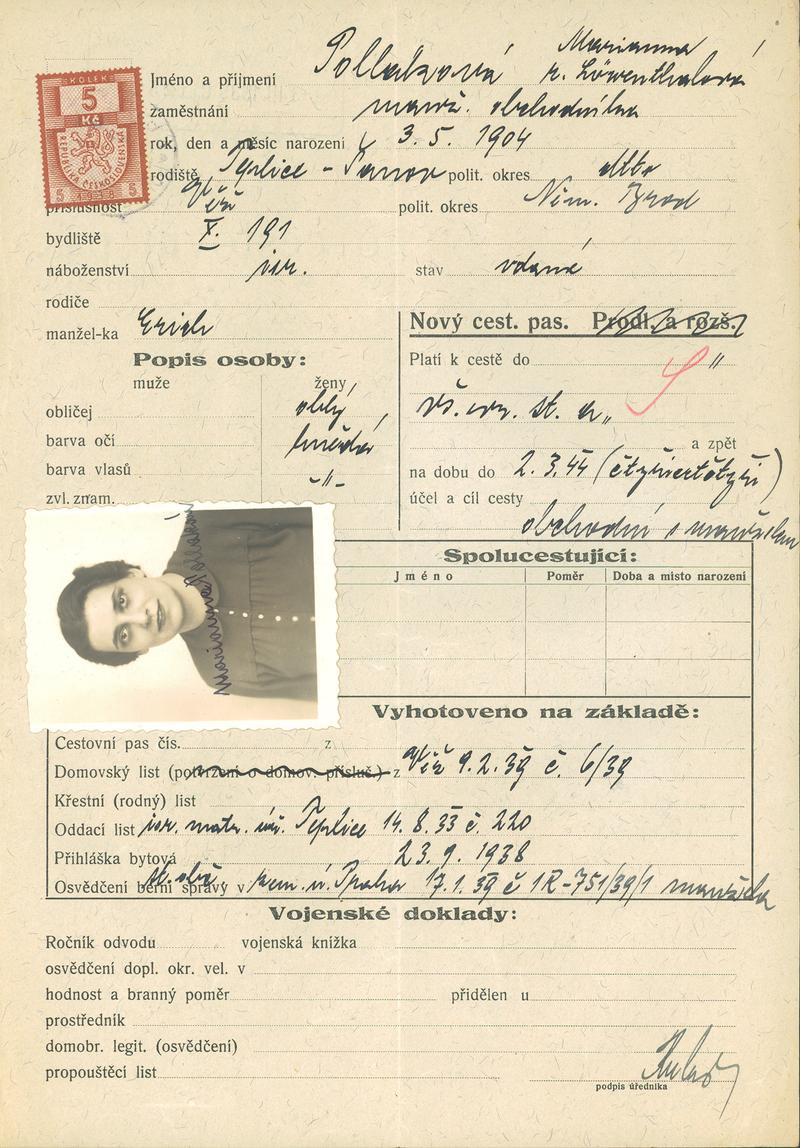 KOLEK
5
Kč
REPUBLIKA ČESKOSLOVENSKÁ
5 1938 5
Marianna
Jméno a příjmení Pollaková r. Löwenthalová
zaměstnání manž. obchodníka
rok, den a měsíc narození 3. 5. 1904
rodiště Teplice - Šanov polit. okres dtto
příslušnost Věž polit. okres Něm. Brod
bydliště X. 191
náboženství isr. stav vdaná
rodiče
manžel-ka Erich
Nový cest. pas. Prodl. a rozš.
Popis osoby:
muže ženy
obličej oblý
barva očí hnědá
barva vlasů -"-
zvl. znam.
Platí k cestě do "
vš. evr. st. a
a zpět
na dobu do 2. 3. 44 (čtyřicetčtyři)
účel a cíl cesty
obchodní s manželem
Marianna Pollaková
Spolucestující:
Jméno Poměr Doba a místo narození
Vyhotoveno na základě:
Cestovní pas čís. z
Domovský list (potvrzení o domov. přísluš.) z Věž 9. 2. 39 č. 6/39
Křestní (rodný) list
Oddací list isr. matr. úř. Teplice 14. 8. 33 č. 220
Přihláška bytová 23. 9. 1938
Osvědčení berní správy v zem. ú. Praha 17. 1. 39 č 1R-751/39/1 manžela
Vojenské doklady:
Ročník odvodu vojenská knížka
osvědčení dopl. okr. vel. v
hodnost a branný poměr přidělen u
prostředník
domobr. legit. (osvědčení)
propouštěcí list
podpis úředníka